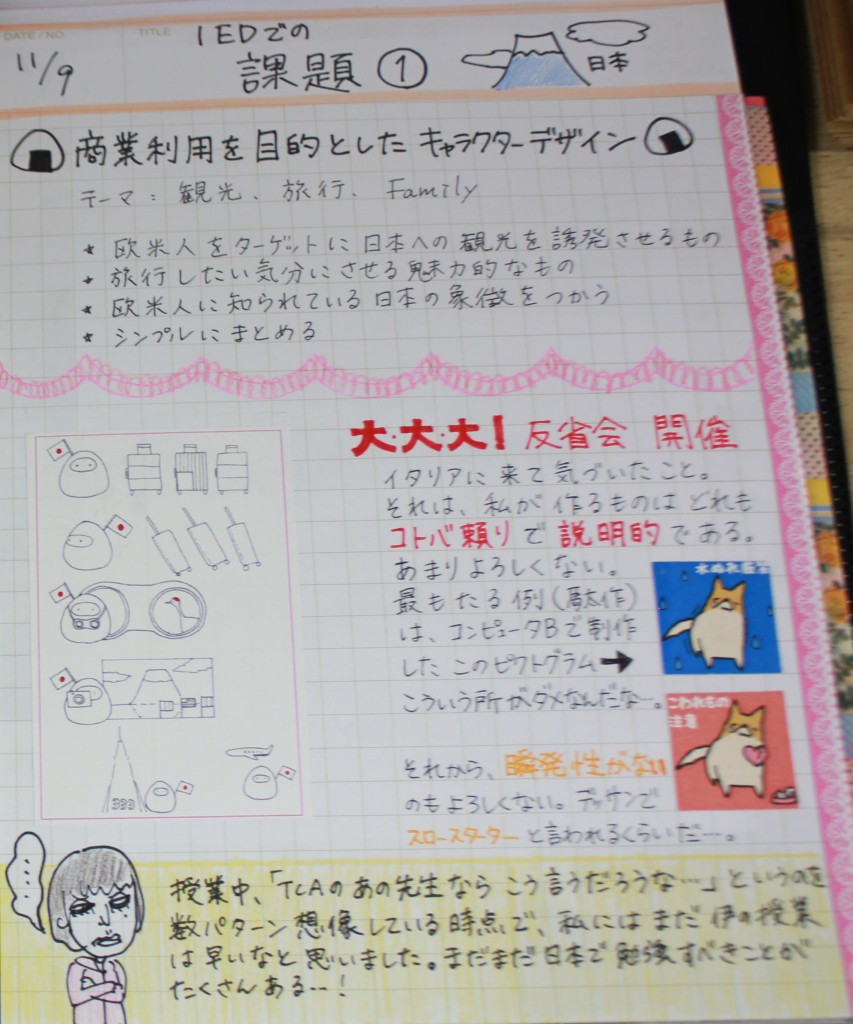 DATE / NO.
TITLE
11/9
IEDでの
課題①
日本
商業利用を目的としたキャラクターデザイン
テーマ：観光、旅行、Family
★ 欧米人をターゲットに日本への観光を誘発させるもの
★ 旅行したい気分にさせる魅力的なもの
★ 欧米人に知られている日本の象徴をつかう
★ シンプルにまとめる
大・大・大！反省会 開催
イタリアに来て気づいたこと。
それは、私が作るものはどれも
コトバ頼りで説明的である。
あまりよろしくない。
最もたる例(駄作)
は、コンピュータBで制作
したこのピクトグラム➞
こういう所がダメなんだな…。
水ぬれ厳禁
こわれもの
注意
それから、瞬発性がない
のもよろしくない。デッサンで
スロースターターと言われるくらいだ…。
授業中、「TCAのあの先生ならこう言うだろうな…」というのを
数パターン想像している時点で、私にはまだ伊の授業
は早いなと思いました。まだまだ日本で勉強すべきことが
たくさんある…！